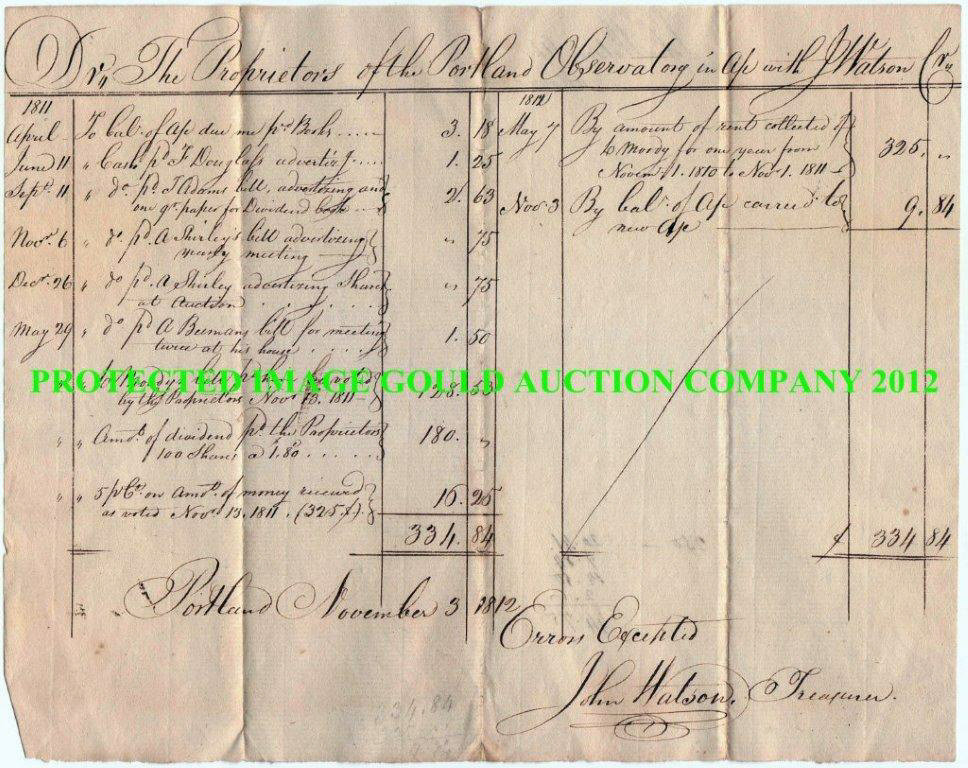 Dr,, The Proprietors of the Portland Observatory in A/c with J Watson Cr,,
1811
April To bal. of A/c due me pr. Books ..... 3. 18
June 11 " Cash pd. F Douglass advertisg. .... 1. 25
Sept. 11 " do. pd. I Adams bill, advertizing and
one qr. paper for Dividend book ... 2. 63
Novr. 6 " do pd. A Shirley's bill advertizing
yearly meeting " 75
Decr. 26 " do pd. A Shirley advertizing Shares
at Auction . . . . . . . " 75
May 29 " do pd A Beemans bill for meeting
twice at his house . . . . . 1. 50
" " Moody's bill
by the Proprietors Novr. 13. 1811 128. 53
" " Amot. of dividend pd. the Proprietors
100 Shares a 1.80 . . . . . . 180. "
" " 5 pr Ct. on Amot. of money received
as voted Novr. 13. 1811. (325$). 16. 25
334. 84
1812
May 7 By amount of rent collected of
L Moody for one year from
Novem. 1. 1810 to Nov. 1. 1811 325. "
Nov. 3 By bal. of A/c carried to
new A/c 9. 84
$ 334 84
Portland November 3 1812
Errors Excepted
John Watson. Treasurer.
334.84
PROTECTED IMAGE GOULD AUCTION COMPANY 2012